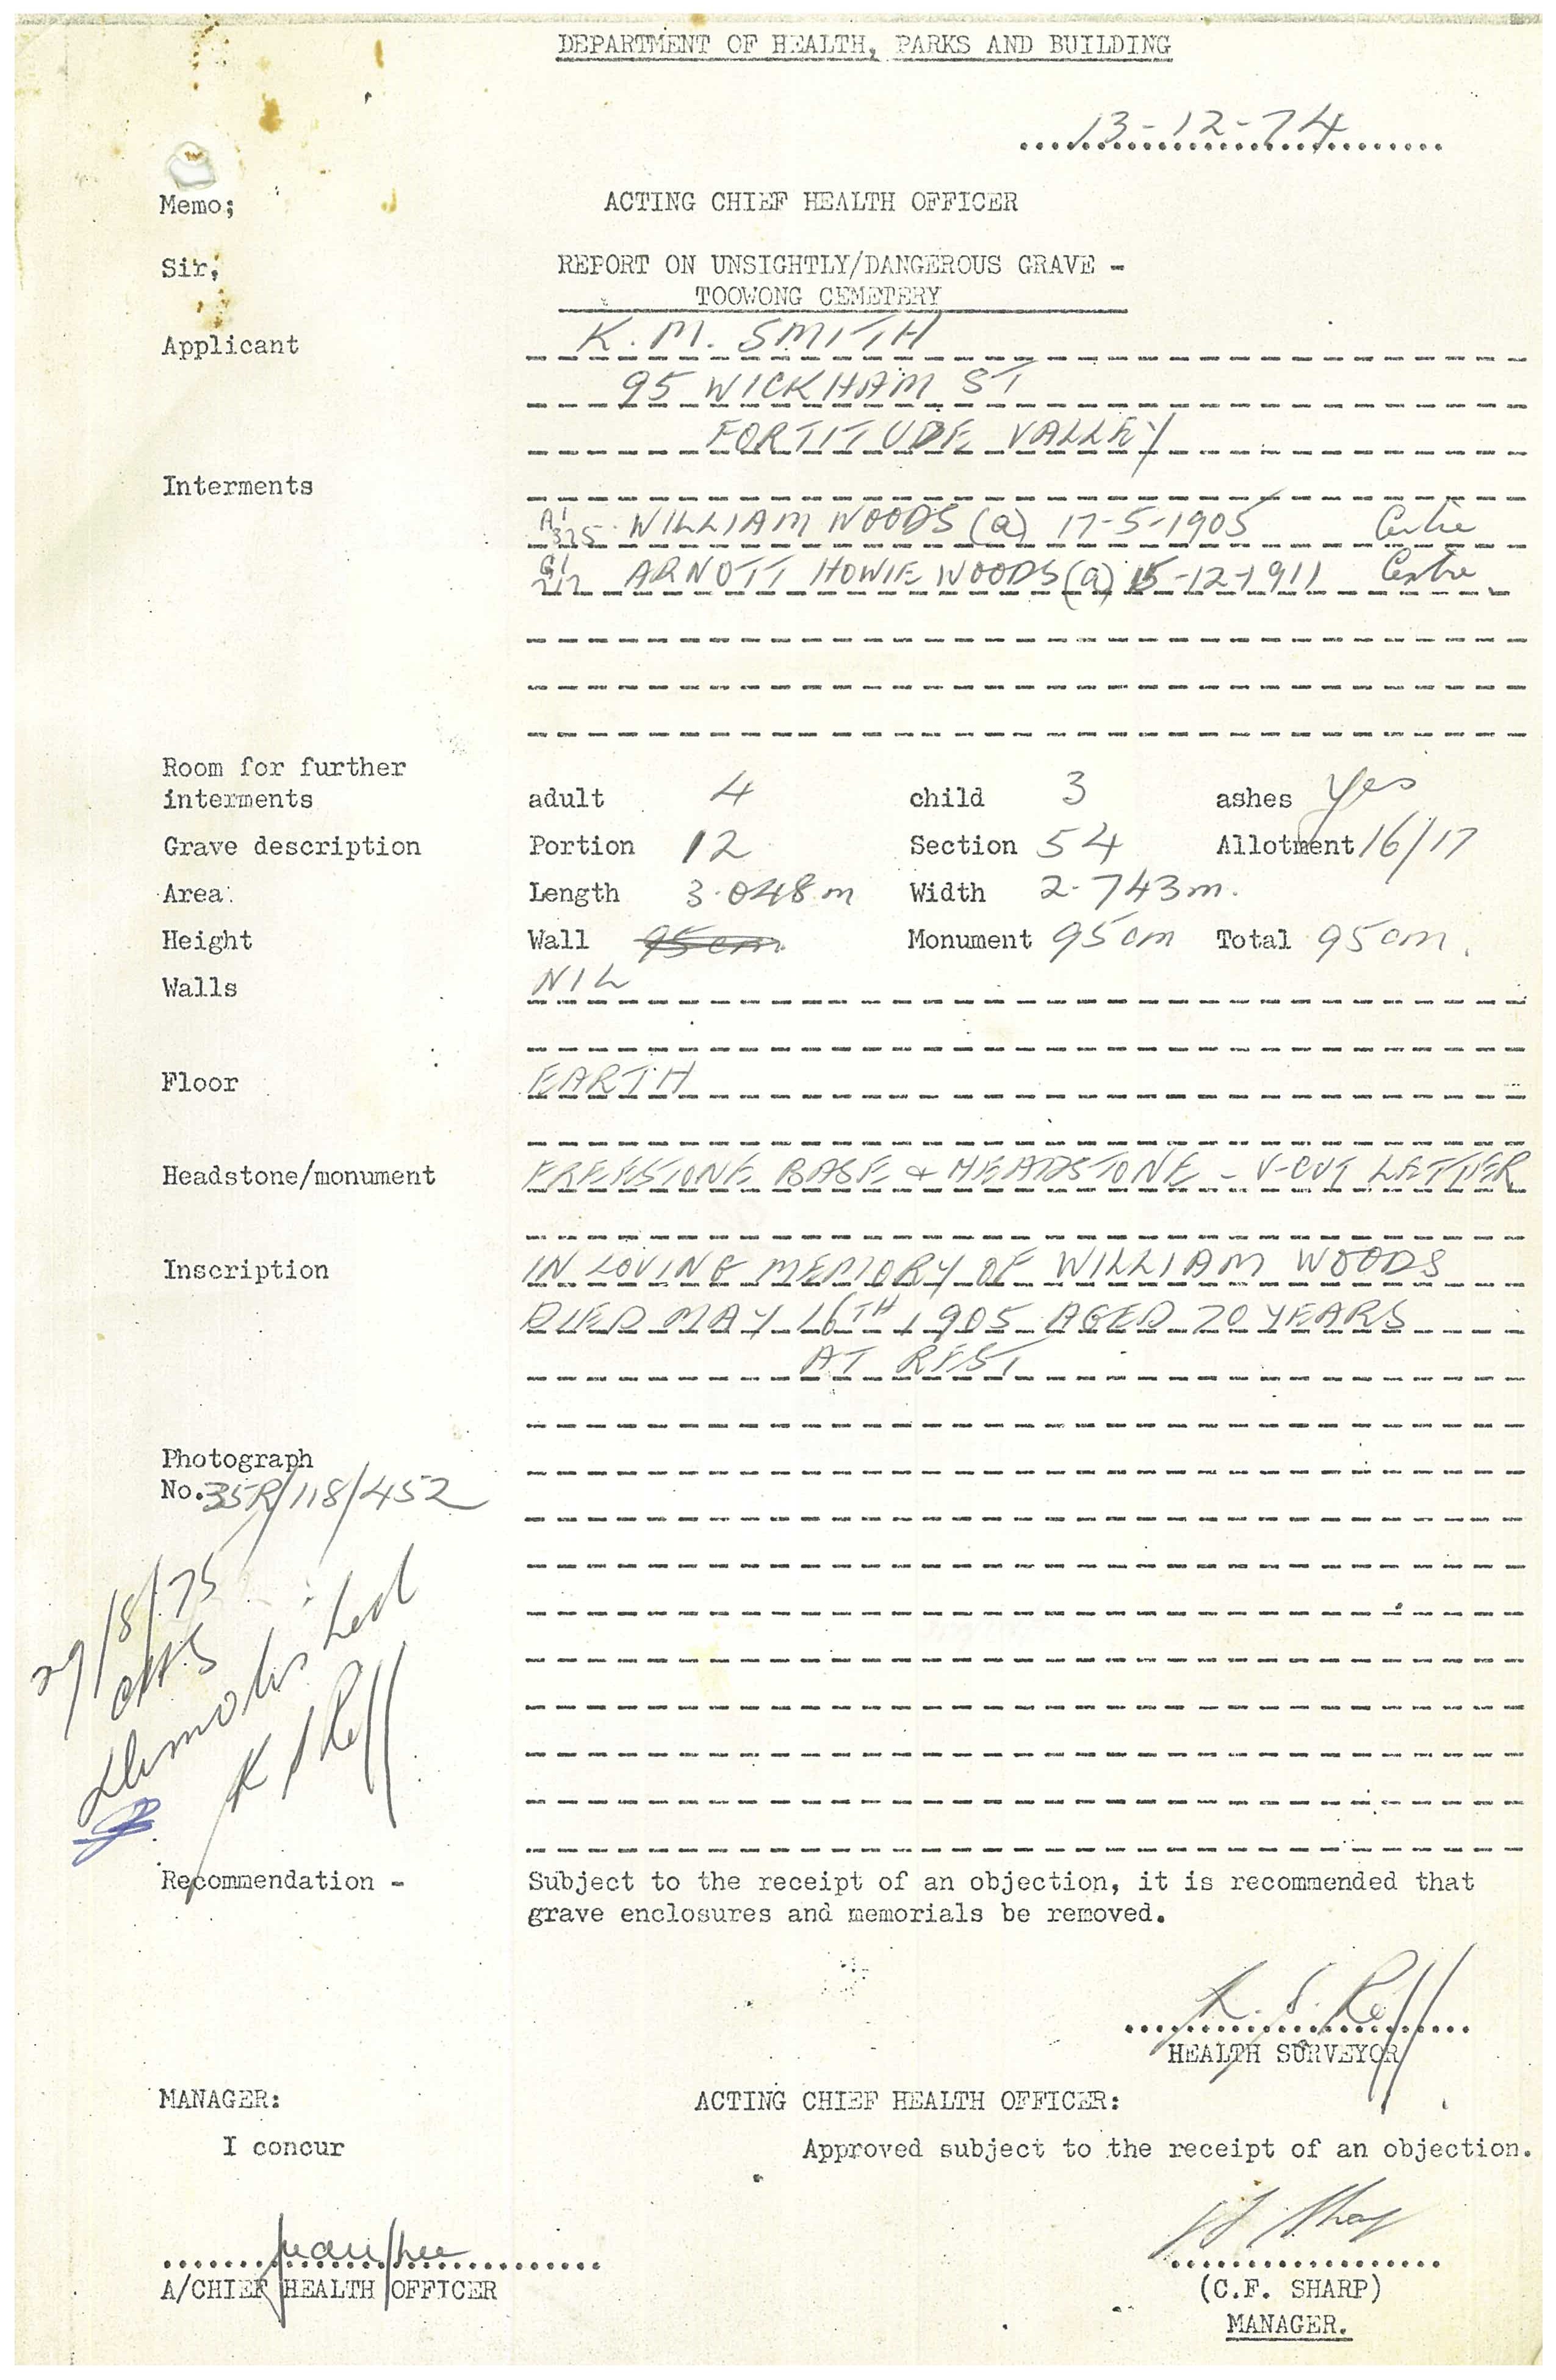 DEPARTMENT OF HEALTH, PARKS AND BUILDING
13-12-74
Memo; ACTING CHIEF HEALTH OFFICER
Sir, REPORT ON UNSIGHTLY/DANGEROUS GRAVE -
TOOWONG CEMETERY
Applicant K.M. SMITH
95 WICKHAM ST
FORTITUDE VALLEY
Interments
A1 325 WILLIAM WOODS (a) 17-5-1905 Centre
ARNOTT HOWIE WOODS (a) 15-12-1911 Centre
Room for further
interments adult 4 child 3 ashes yes
Grave description Portion 12 Section 54 Allotment 16/17
Area: Length 3.048m Width 2.743m.
Height Wall 95cm Monument 95cm Total 95cm.
Walls NIL
Floor EARTH
Headstone/monument FREESTONE BASE & HEADSTONE - V-CUT LETTER
Inscription IN LOVING MEMORY OF WILLIAM WOODS
DIED MAY 16TH 1905 AGED 70 YEARS
AT REST
Photograph
No. 35R/118/452
29/8/75
Demolished
K S Reff
Recommendation - Subject to the receipt of an objection, it is recommended that
grave enclosures and memorials be removed.
K.S. Reff
HEALTH SURVEYOR
MANAGER: ACTING CHIEF HEALTH OFFICER:
I concur Approved subject to the receipt of an objection.
A/CHIEF HEALTH OFFICER (C.F. SHARP)
MANAGER.